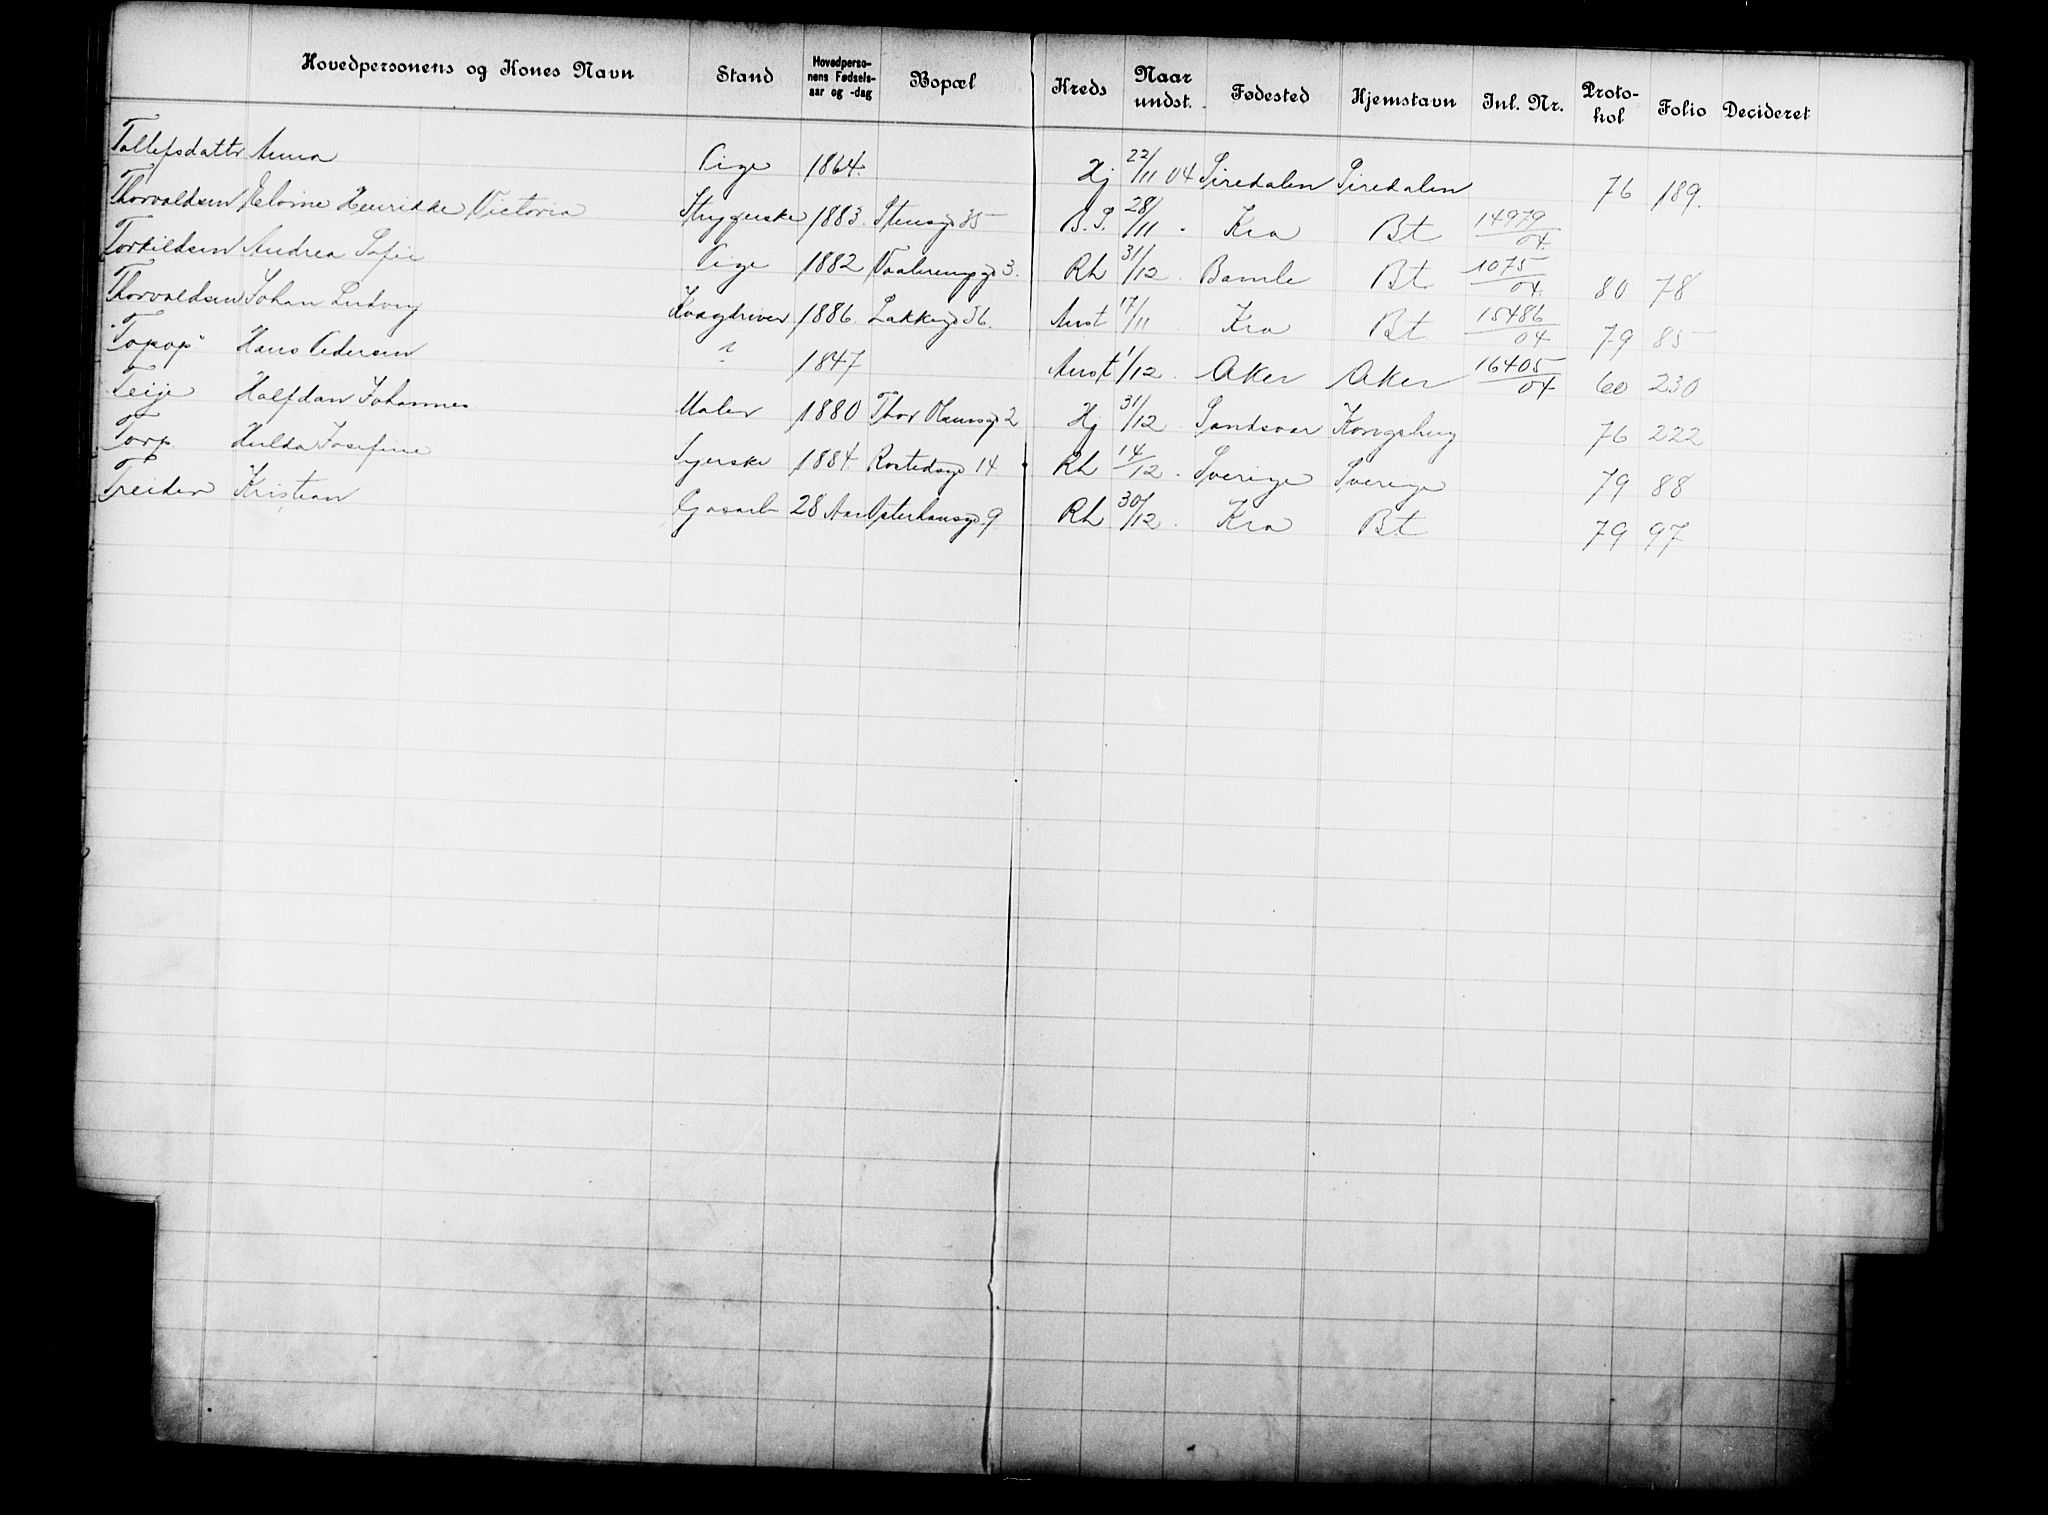 Hovedpersonens og Kones Navn Stand Hovedpersonens Fødselsaar og -dag Bopæl Kreds Naar undst. Fødested Hjemstavn Jnl. Nr. Protokol Folio Decideret
Tollefsdattr Anna Pige 1864. Hj 22/11 04 Siredalen Siredalen 76 189.
Thorvaldsen Elvine Henrikke Victoria Strygerske 1883. Stensgd 35 B. S. 28/11 . Kra Bt 14979/04.
Torkildsen Andrea Sofie Pige 1882 Vaalerenggd 3. Rh 31/12 . Bamle Bt 1075/04. 80 78
Thorvaldsen Johan Ludvig 1886. Lakkegd 56. Anst 17/11 Kra Bt 15486/04 79 85
"Topop" Hans Pedersen ? 1847 Anst 1/12 . Aker Aker 16405/04 60 230
Teije Halfdan Johannes Maler 1880 Thor Olsensgd 2 Hj 31/12 . Sandsvær Kongsberg 76 222
Torp Hulda Josefine Syerske 1884 Rostedsgd 14 Rh 14/12 . Sverige Sverige 79 88
Treider Kristian Gasarb 28 Aar Osterhausgd. 9 Rh 30/12 . Kra Bt 79 97